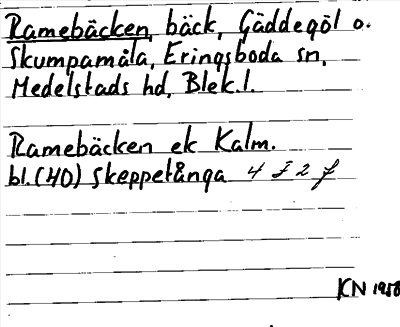 Ramebäcken, bäck, Gäddegöl o.
Skumpamåla, Eringsboda sn,
Medelstads hd, Blek.l.
Ramebäcken ek Kalm.
bl. (HO) Skeppetånga 4 F 2 f
KN 1958